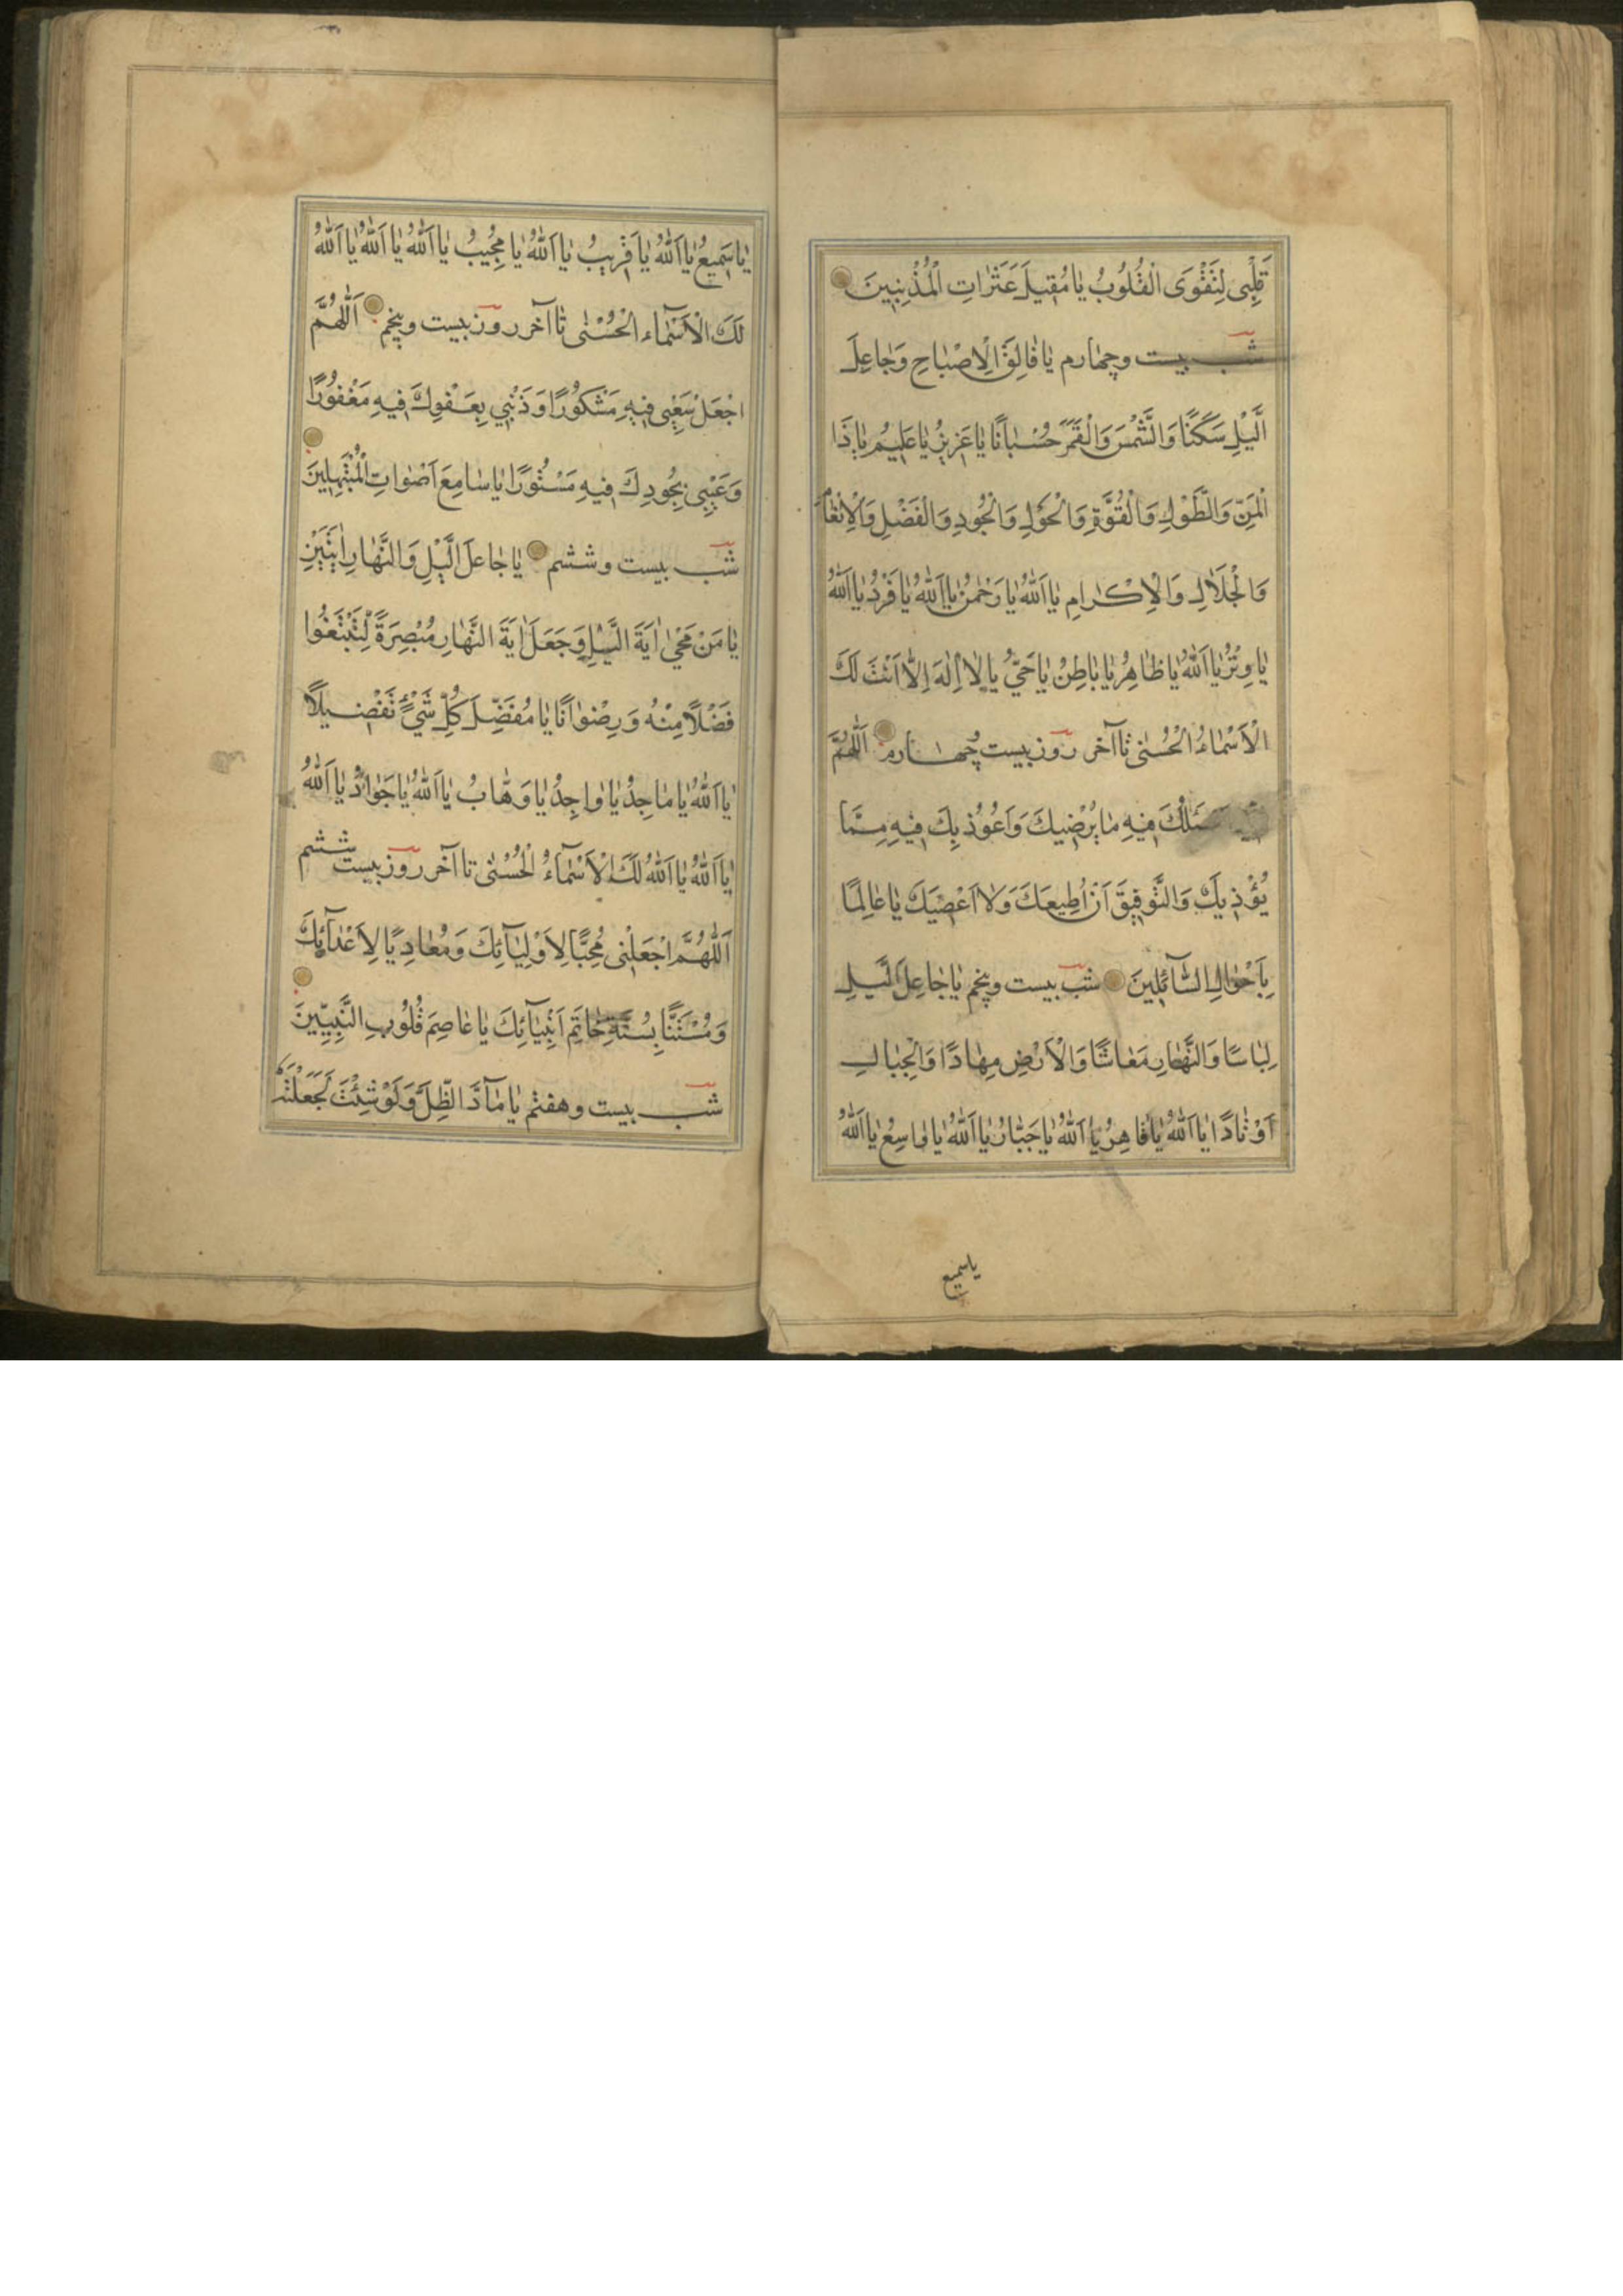 قَلْبِى لِتَقْوَى الْقُلُوبُ يٰا مُقِيلَ عَثَرٰاتِ الْمُذْنِبِينَ
شب بيست وچهارم يٰا فٰالِقَ الْاِصْبٰاحِ وَجٰاعِلَ
الَّيْلِ سَكَنًا وَالشَّمْسَ وَالْقَمَرَ حُسْبٰانًا يٰا عَزِيزُ يٰا عَلِيمُ يٰا ذَا
الْمَنِّ وَالطَّوْلِ وَالْقُوَّةِ وَالْحَوْلِ وَالْجُودِ وَالْفَضْلِ وَالْاِنْعٰامِ
وَالْجَلٰالِ وَالْاِكْرٰامِ يٰا اَللّٰهُ يٰا رَحْمٰنُ يٰا اَللّٰهُ يٰا فَرْدُ يٰا اَللّٰهُ
يٰا وِتْرُ يٰا اَللّٰهُ يٰا ظٰاهِرُ يٰا بٰاطِنُ يٰا حَىُّ يٰا لٰا اِلٰهَ اِلّٰا اَنْتَ لَكَ
الْاَسْمٰاءُ الْحُسْنٰى تا آخر روز بيست چهارم اَللّٰهُمَّ
اَسْئَلُكَ فِيهِ مٰا يُرْضِيكَ وَاَعُوُذُ بِكَ فِيهِ مِمَّا
يُؤْذِيكَ وَالتَّوْفِيقَ اَنْ اُطِيعَكَ وَلٰا اَعْصِيَكَ يٰا عٰالِمًا
بِاَحْوٰالِ السّٰآئِلِينَ شب بيست وپنجم يٰا جٰاعِلَ الَّيْلِ
لِبٰاسًا وَالنَّهٰارِ مَعٰاشًا وَالْاَرْضِ مِهٰادًا وَالْجِبٰالِ
اَوْتٰادًا يٰا اَللّٰهُ يٰا قٰاهِرُ يٰا اَللّٰهُ يٰا جَبّٰارُ يٰا اَللّٰهُ يٰا وٰاسِعُ يٰا اَللّٰهُ
ياسميع
يٰا سَمِيعُ يٰا اَللّٰهُ يٰا قَرِيبُ يٰا اَللّٰهُ يٰا مُجِيبُ يٰا اَللّٰهُ يٰا اَللّٰهُ يٰا اَللّٰهُ
لَكَ الْاَسْمٰاء الْحُسْنٰى تا آخر روز بيست وپنجم اَللّٰهُمَّ
اجْعَلْ سَعْيِى فِيهِ مَشْكُوُرًا وَذَنْبِي بِعَفْوِكَ فِيهِ مَغْفُوُرًا
وَعَيْبِى بِجُودِكَ فِيهِ مَسْتُورًا يٰا سٰامِعَ اَصْوٰاتِ الْمُبْتَهِلِينَ
شب بيست وششم يٰا جٰاعِلَ الَّيْلِ وَالنَّهٰارِ اٰيَتَيْنِ
يٰا مَنْ مَحٰى اٰيَةَ الَّيْلِ وَجَعَلَ اٰيَةَ النَّهٰارِ مُبْصِرَةً لِتَبْتَغُوا
فَضْلًا مِنْهُ وَرِضْوٰانًا يٰا مُفَصِّلَ كُلِّ شَيْءٍ تَفْصِيلًا
يٰا اَللّٰهُ يٰا مٰاجِدُ يٰا وٰاجِدُ يٰا وَهّٰابُ يٰا اَللّٰهُ يٰا جَوٰادُ يٰا اَللّٰهُ
يٰا اَللّٰهُ يٰا اَللّٰهُ لَكَ الْاَسْمٰآءُ الْحُسْنٰى تا آخر روز بيست ششم
اَللّٰهُمَّ اجْعَلْنِى مُحِبًّا لِاَوْلِيٰآئِكَ وَمُعٰادِيًا لِاَعْدٰآئِكَ
وَمُسْتَنًّا بِسُنَّةِ خٰاتَمِ اَنْبِيٰآئِكَ يٰا عٰاصِمَ قُلُوُبِ النَّبِيِّينَ
شب بيست وهفتم يٰا مٰآدَّ الظِّلِّ وَلَوْ شِئْتَ لَجَعَلْتَهُ